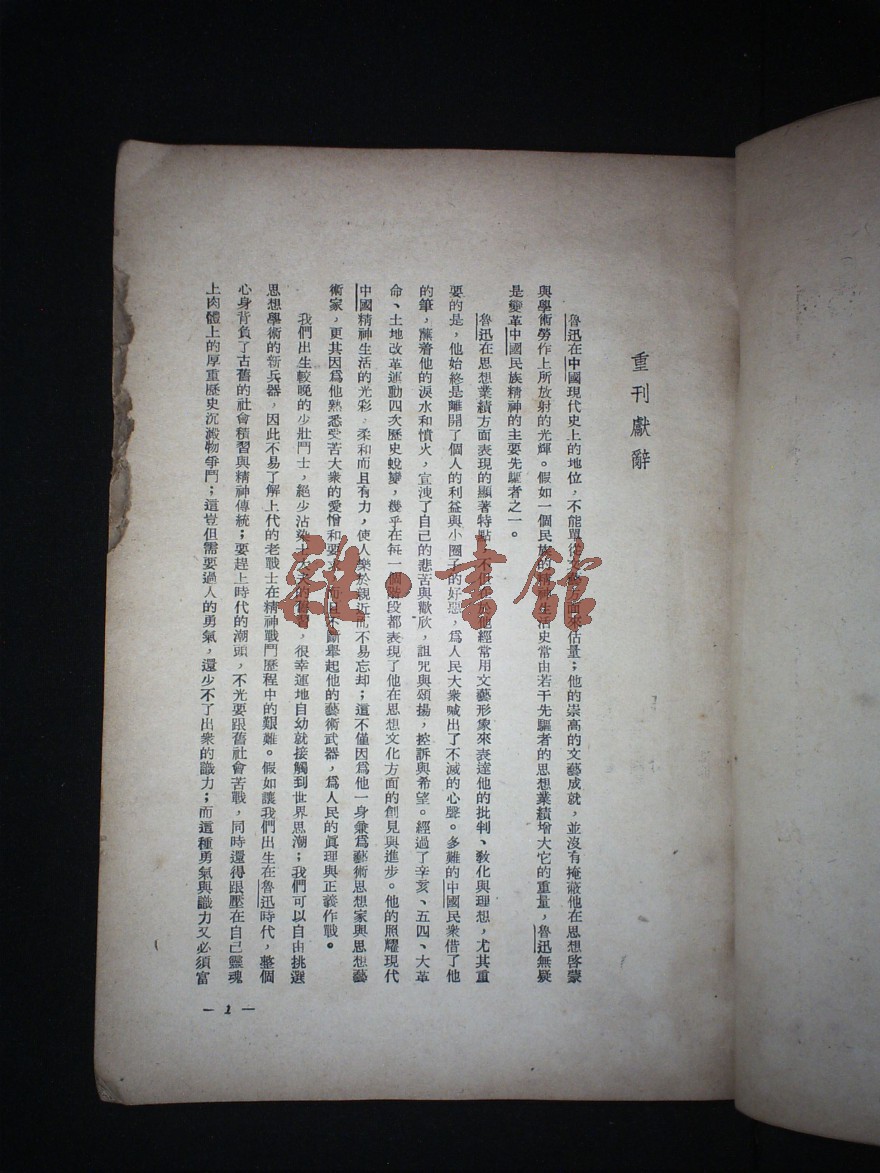 重刊獻辭
魯迅在中國現代史上的地位，不能單從文藝方面來估量；他的崇高的文藝成就，並沒有掩蔽他在思想啓蒙
與學術勞作上所放射的光輝。假如一個民族的精神生活史常由若干先驅者的思想業績增大它的重量，魯迅無疑
是變革中國民族精神的主要先驅者之一。
魯迅在思想業績方面表現的顯著特點，不但在於他經常用文藝形象來表達他的批判、敎化與理想，尤其重
要的是，他始終是離開了個人的利益與小圈子的好惡，爲人民大衆喊出了不滅的心聲。多難的中國民衆借了他
的筆，蘸着他的淚水和憤火，宣洩了自己的悲苦與歡欣，詛咒與頌揚，控訴與希望。經過了辛亥、五四、大革
命、土地改革運動四次歷史蛻變，幾乎在每一個階段都表現了他在思想文化方面的創見與進步。他的照耀現代
中國精神生活的光彩，柔和而且有力，使人樂於親近而不易忘却；這不僅因爲他一身兼爲藝術思想家與思想藝
術家，更其因爲他熟悉受苦大衆的愛憎和要求，而且不斷舉起他的藝術武器，爲人民的眞理與正義作戰。
我們出生較晚的少壯鬥士，絕少沾染士大夫的舊習，很幸運地自幼就接觸到世界思潮；我們可以自由挑選
思想學術的新兵器，因此不易了解上代的老戰士在精神戰鬥歷程中的艱難。假如讓我們出生在魯迅時代，整個
心身背負了古舊的社會積習與精神傳統；要趕上時代的潮頭，不光要跟舊社會苦戰，同時還得跟壓在自己靈魂
上肉體上的厚重歷史沉澱物爭鬥；這豈但需要過人的勇氣，還少不了出衆的識力；而這種勇氣與識力又必須富
— 1 —
雜·書館